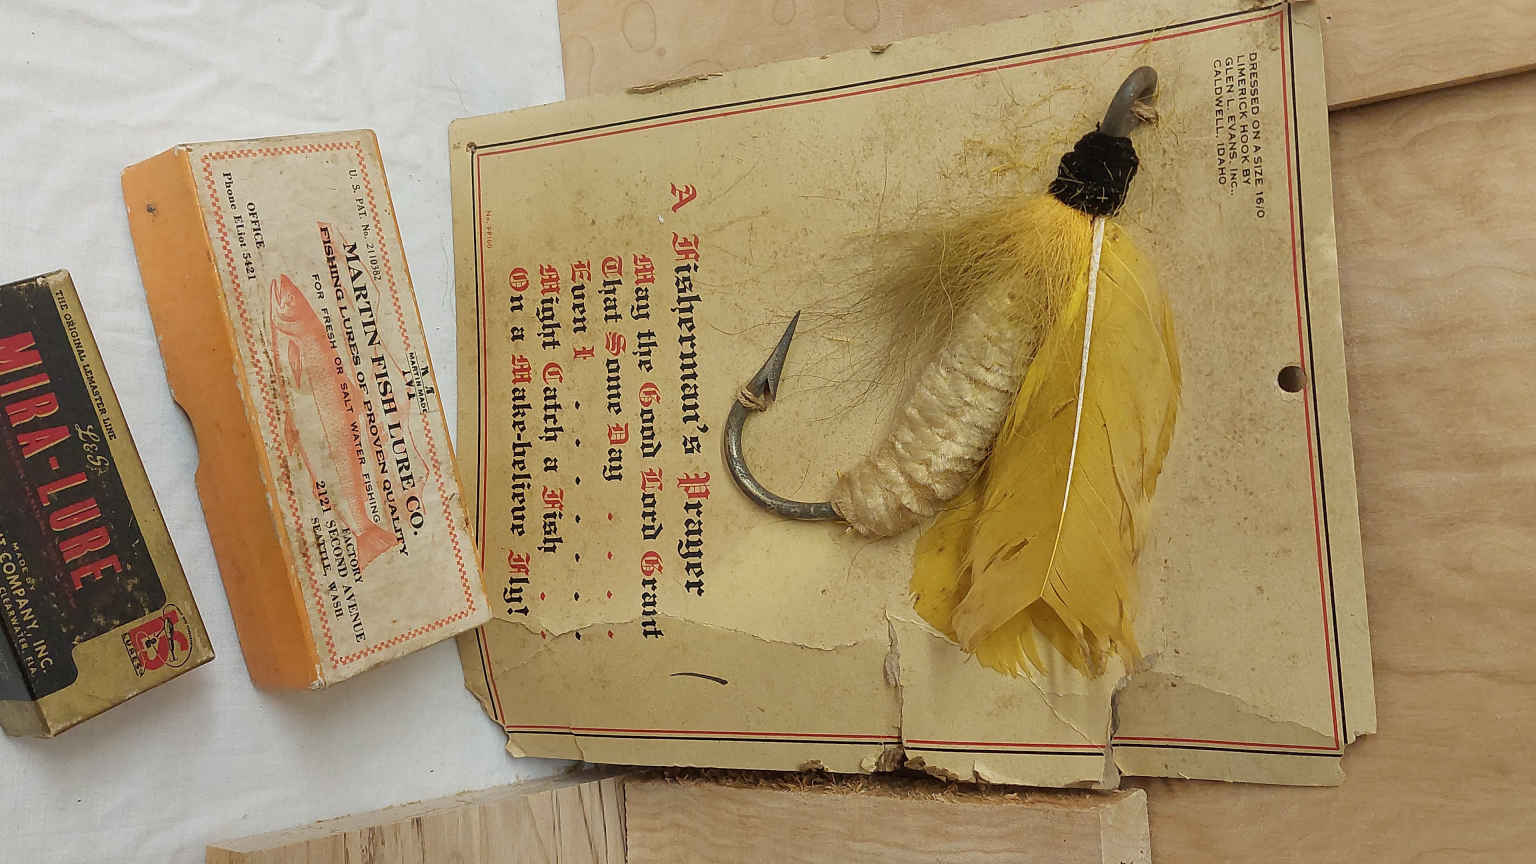 DRESSED ON A SIZE 16/0
LIMERICK HOOK BY
GLEN L. EVANS, INC.,
CALDWELL, IDAHO
A Fisherman's Prayer
May the Good Lord Grant
That Some Day . . . .
Even I . . . . . . .
Might Catch a Fish
On a Make-believe Fly!
MARTIN MADE
U. S. PAT. No. 2110382
MARTIN FISH LURE CO.
FISHING LURES OF PROVEN QUALITY
FOR FRESH OR SALT WATER FISHING
OFFICE
Phone ELiot 5421
FACTORY
2121 SECOND AVENUE
SEATTLE, WASH
THE ORIGINAL LEMASTER LINE
L&S
MIRA-LURE
MADE BY
COMPANY, INC.
CLEARWATER, FLA.
LURES